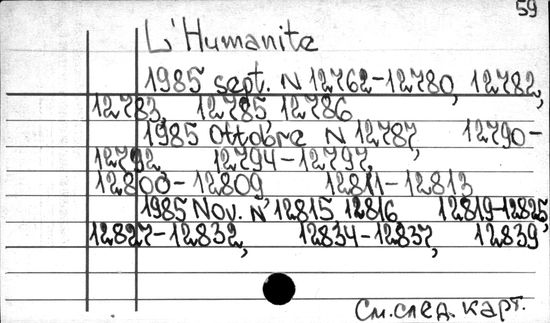 59
L'Humanite
1985 sept. N 12762-12780, 12782,
12783, 12785, 12786
1985 Ottobre N 12787, 12790-
12792, 12794-12797,
12800-12809 12811-12813
1985 Nov. N 12815 12816 12819-12825,
12827-12832, 12834-12837, 12839,
См. след. карт.